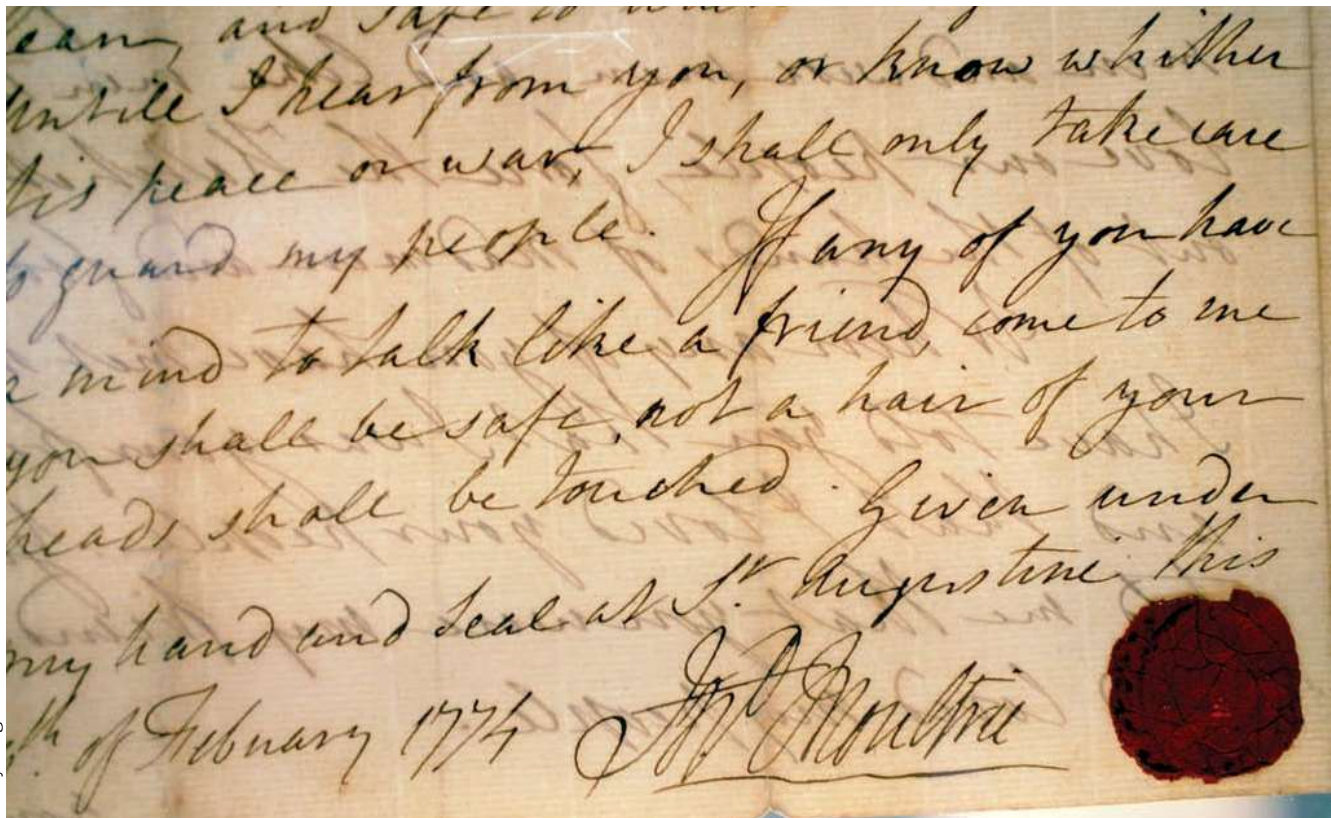 and safe
untill I hear from you, or know whither
tis peace or war, I shall only take care
to guard my people. If any of you have
a mind to talk like a friend, come to me
you shall be safe, not a hair of your
heads shall be touched. Given under
my hand and Seal at St. Augustine this
th. of February 1774 Jno. Moultrie